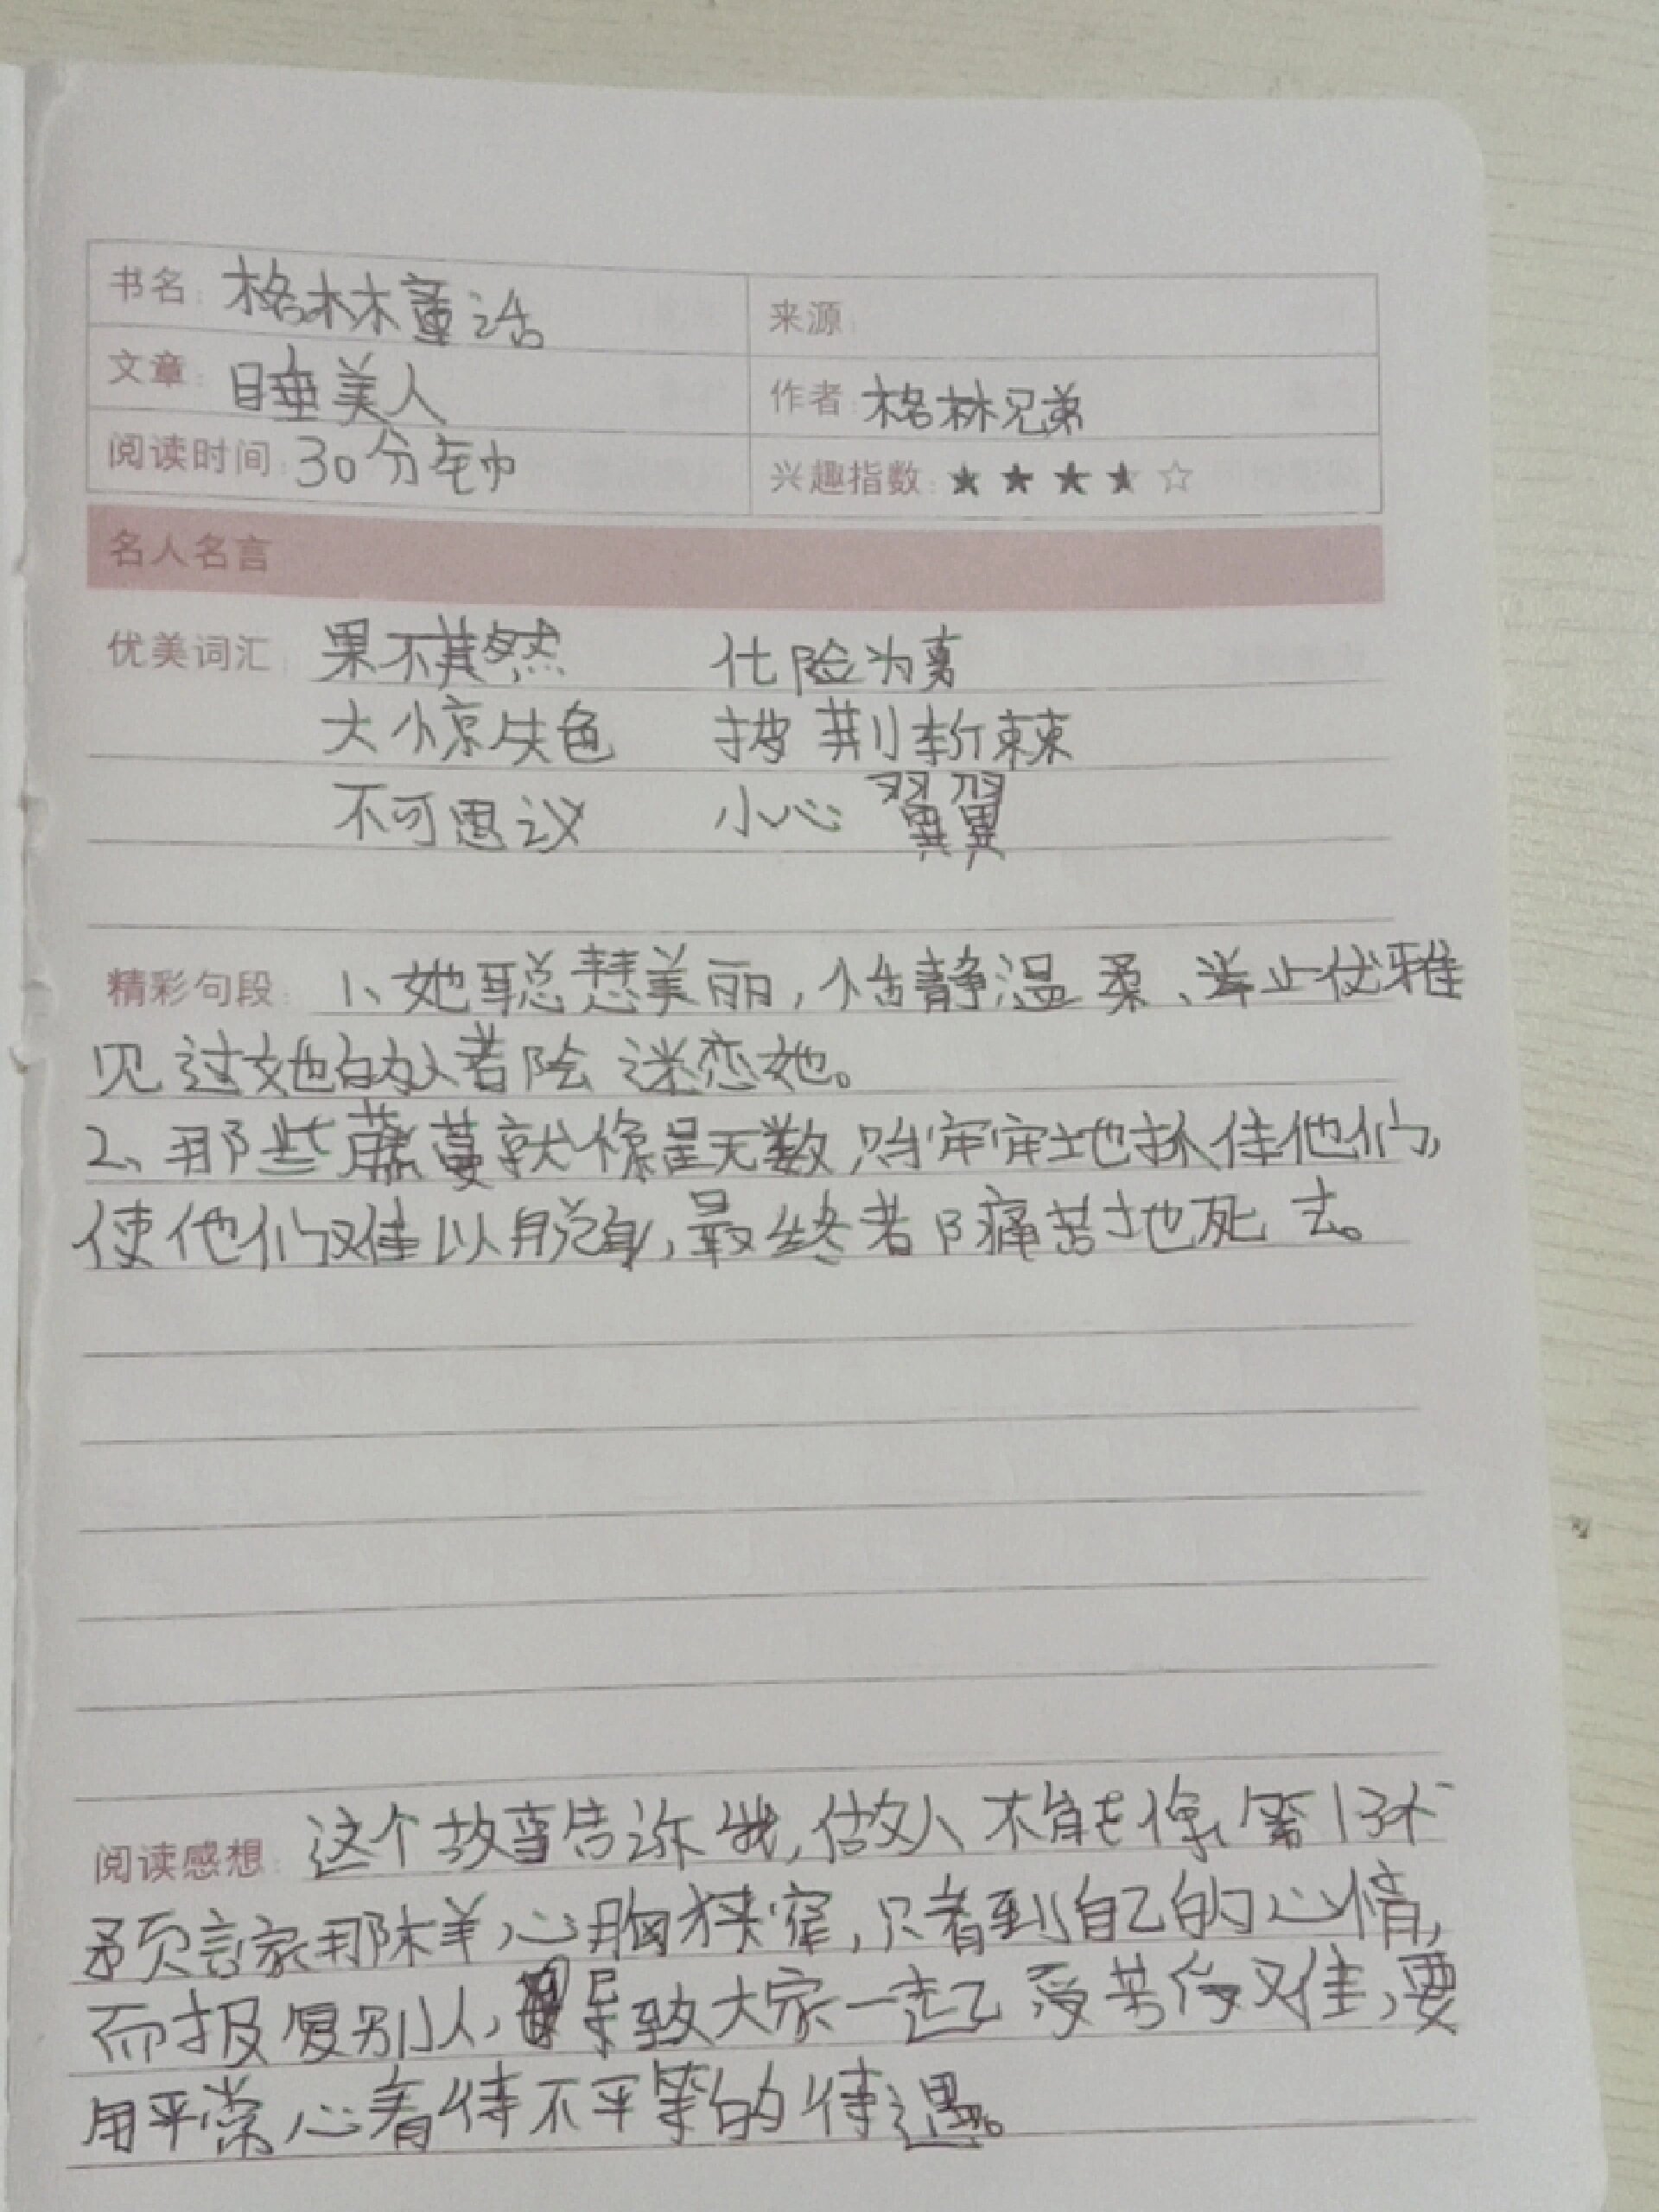 书名: 格林童话
来源:
文章: 睡美人
作者: 格林兄弟
阅读时间: 30分钟
兴趣指数: ★★★★☆
名人名言
优美词汇: 果不其然 化险为夷
大惊失色 披荆斩棘
不可思议 小心翼翼
精彩句段: 1、她聪慧美丽,恬静温柔、举止优雅
见过她的人都 迷恋她。
2、那些藤蔓就像是无数,牢牢地抓住他们,
使他们难以脱身,最终都痛苦地死去。
阅读感想: 这个故事告诉我,做人不能像第13个
预言家那样心胸狭窄,只看到自己的心情,
而报复别人,导致大家一起受苦受难,要
用平常心看待不平等的待遇。